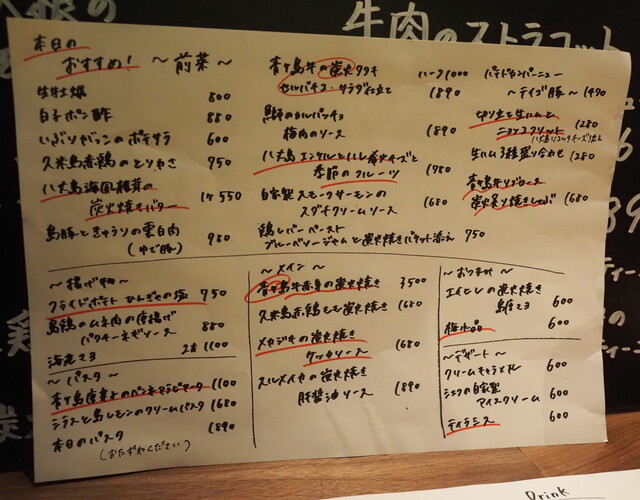 牛肉のストラコット
本日の
おすすめ! 〜前菜〜
生牡蠣 800
白子ポン酢 880
いぶりがっこのポテサラ 600
久米島赤鶏のとりわさ 950
八丈島海風椎茸の
炭火焼きバター 1ケ 550
島豚ときゅうりの雲白肉
(ゆで豚) 980
青ヶ島牛の炭火タタキ ハーフ1000
セルバチコ・サラダ仕立て 1890
鰤のカルパッチョ
梅肉のソース 1890
八丈島エンケルとハル 海水チーズと
季節のフルーツ 1980
自家製スモークサーモンの
スダチクリームソース 1680
鶏レバーペースト
ブルーベリージャムと炭火焼きバケット添え 950
パテドカンパーニュ
〜テイゴ豚〜 1490
切り立て生ハムと
ニョッコフリット 1280
生ハム3種盛り合わせ 1280
炭火炙り焼きしゃぶ 1680
〜揚げ物〜
フライドポテト ひんぎゃの塩 750
島鶏のムネ肉の唐揚げ
バタネギソース 880
海老マヨ 2本 1100
〜パスタ〜
青ヶ島唐辛子のペンネアラビアータ 1100
シラスと島レモンのクリームパスタ 1680
本日のパスタ 1890
(おたずねください)
〜メイン〜
青ヶ島牛赤身の炭火焼き 3500
久米島赤鶏もも炭火焼き 1680
メカジキの炭火焼き
ケッカソース 1680
スルメイカの炭火焼き
肝醤油ソース 1890
〜おつまみ〜
エイヒレの炭火焼き
600
梅水晶 600
〜デザート〜
クリームキャラメル 600
シェフの自家製
アイスクリーム 600
ティラミス 600
Drink